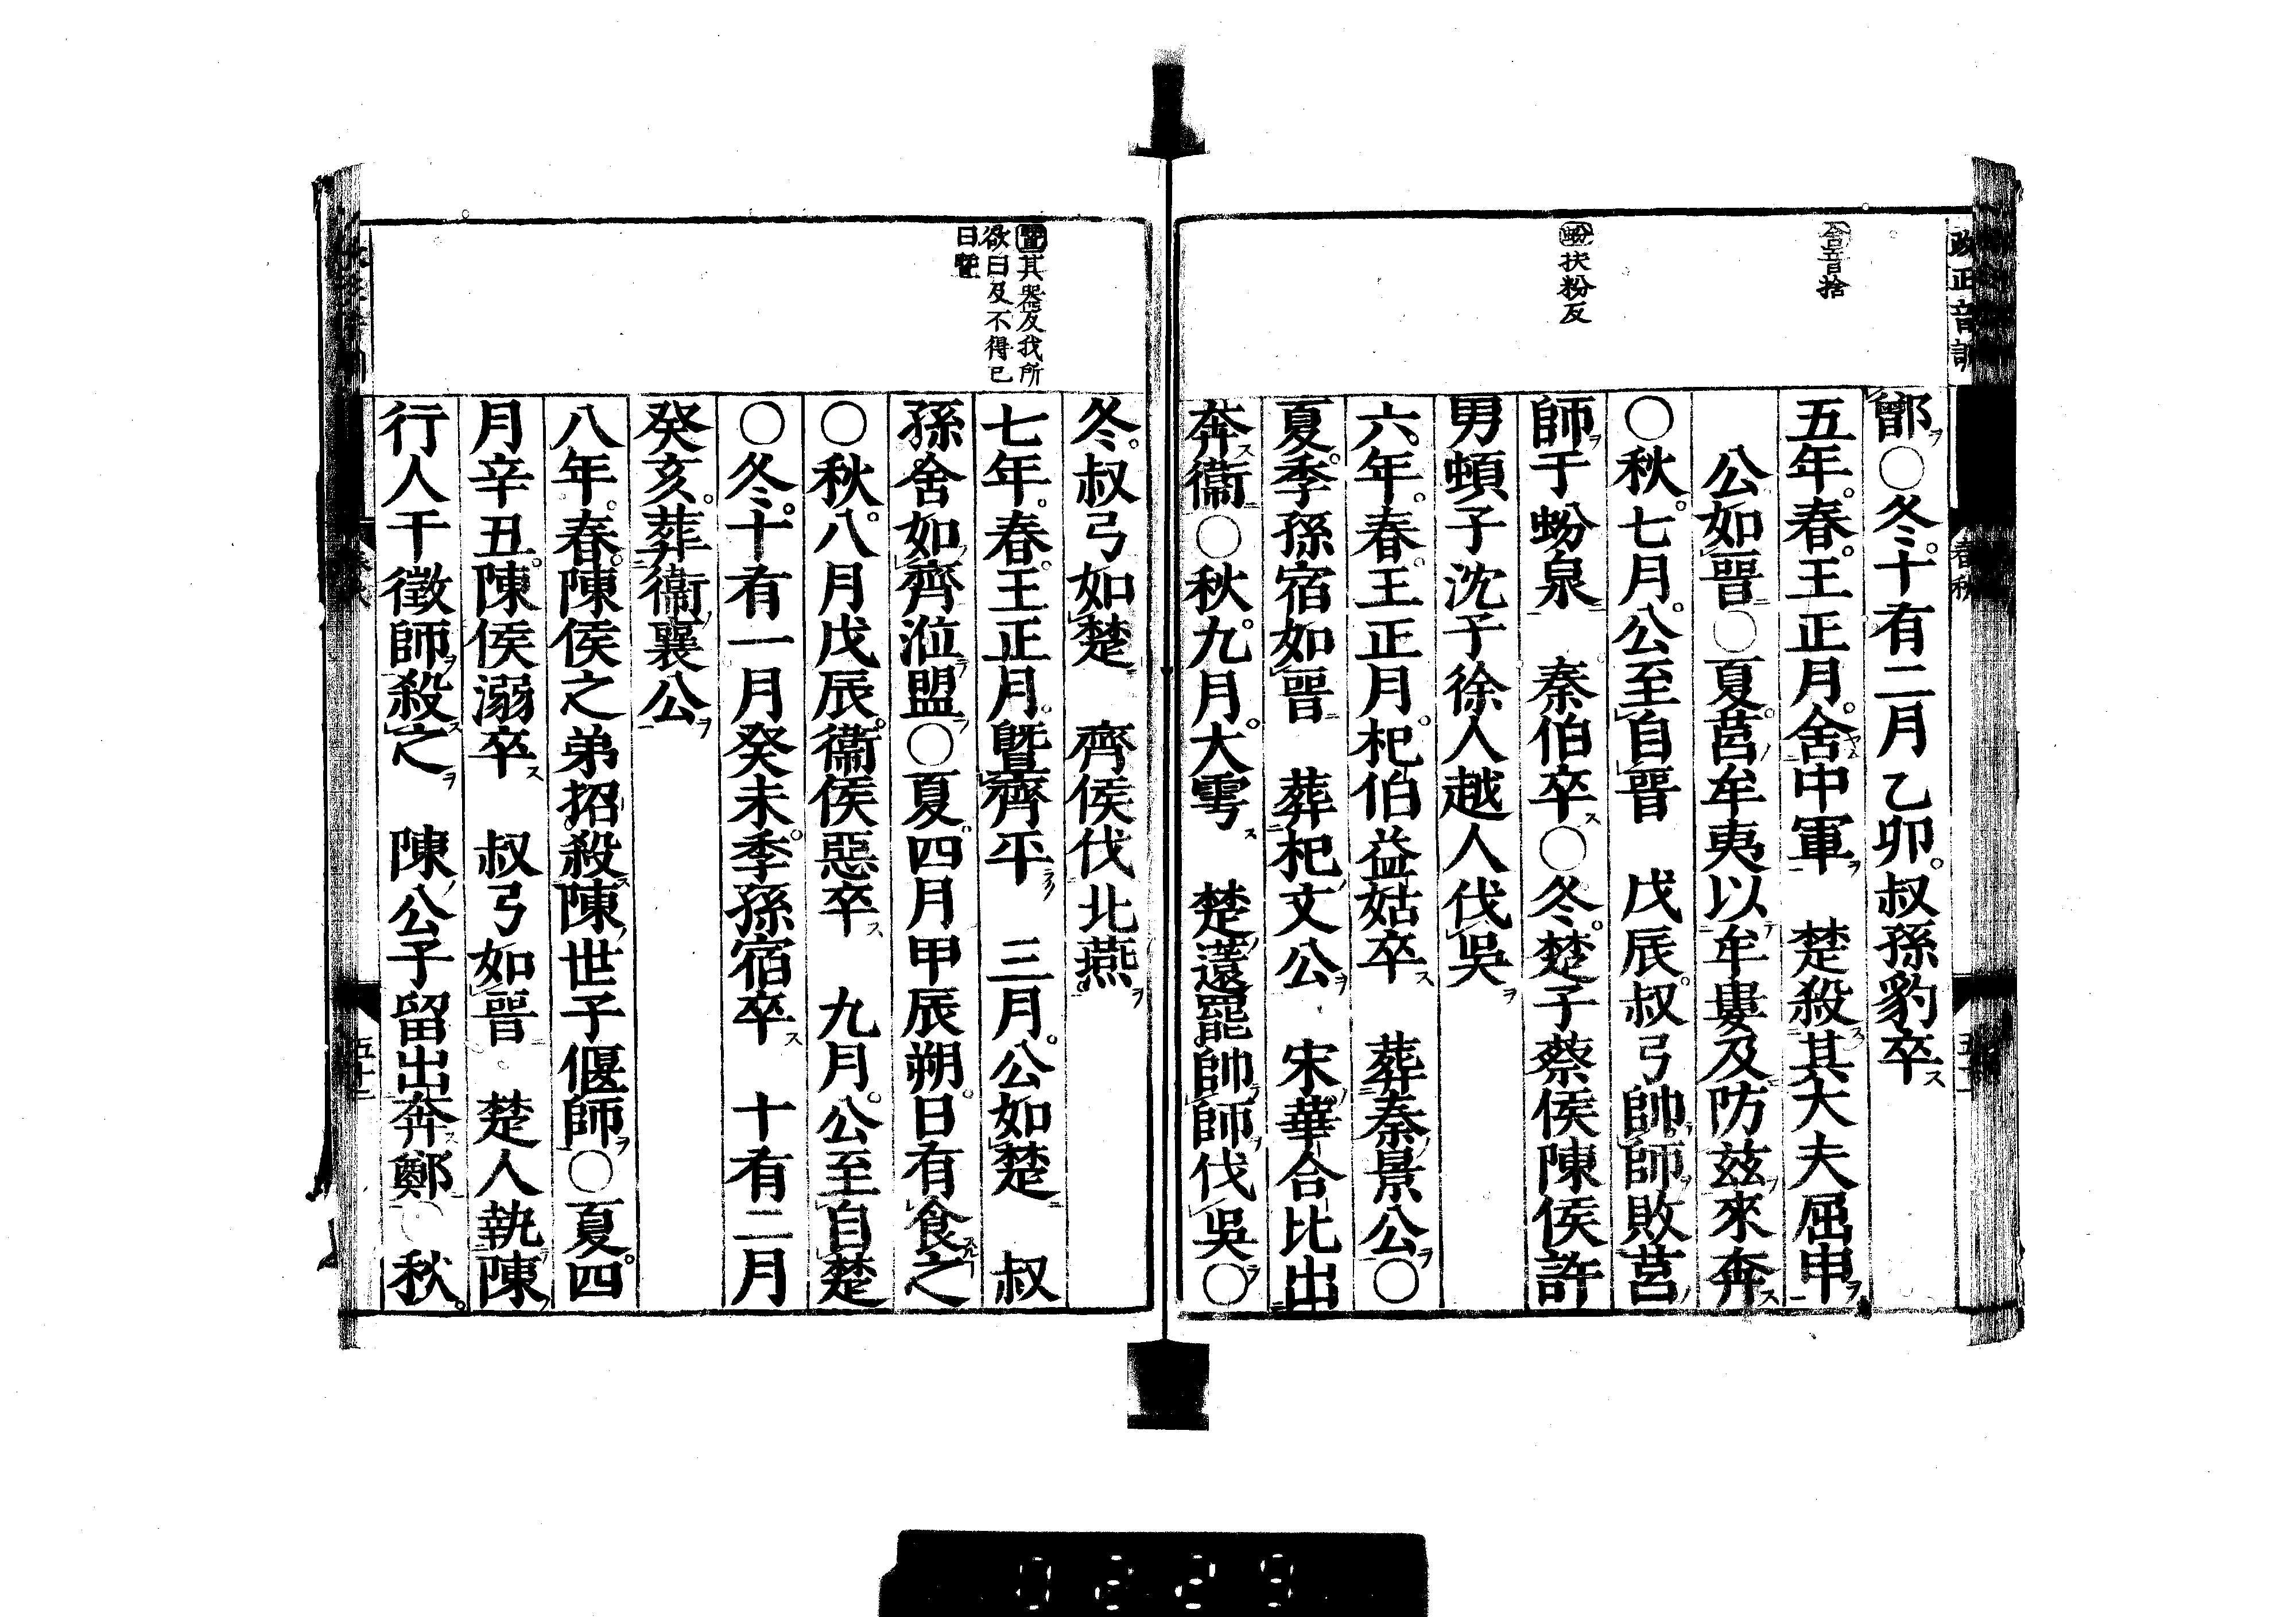 改正音訓
舍音捨
蚡扶粉反
鄫○冬十有二月乙卯叔孫豹卒
五年春王正月舍中軍　楚殺其大夫屈申
公如晉○夏莒牟夷以牟婁及防茲來奔
○秋七月公至自晉　戊辰叔弓帥師敗莒
師于蚡泉　秦伯卒○冬楚子蔡侯陳侯許
男頓子沈子徐人越人伐吳
六年春王正月杞伯益姑卒　葬秦景公○
夏季孫宿如晉　葬杞文公　宋華合比出
奔衞○秋九月大雩　楚薳罷帥師伐吳○
春秋
曁其器反我所
欲曰及不得已
曰曁
冬叔弓如楚　齊侯伐北燕
七年春王正月曁齊平　三月公如楚　叔
孫舍如齊涖盟○夏四月甲辰朔日有食之
○秋八月戊辰衞侯惡卒　九月公至自楚
○冬十有一月癸未季孫宿卒　十有二月
癸亥葬衞襄公
八年春陳侯之弟招殺陳世子偃師○夏四
月辛丑陳侯溺卒　叔弓如晉　楚人執陳
行人干徵師殺之　陳公子留出奔鄭○秋
0229